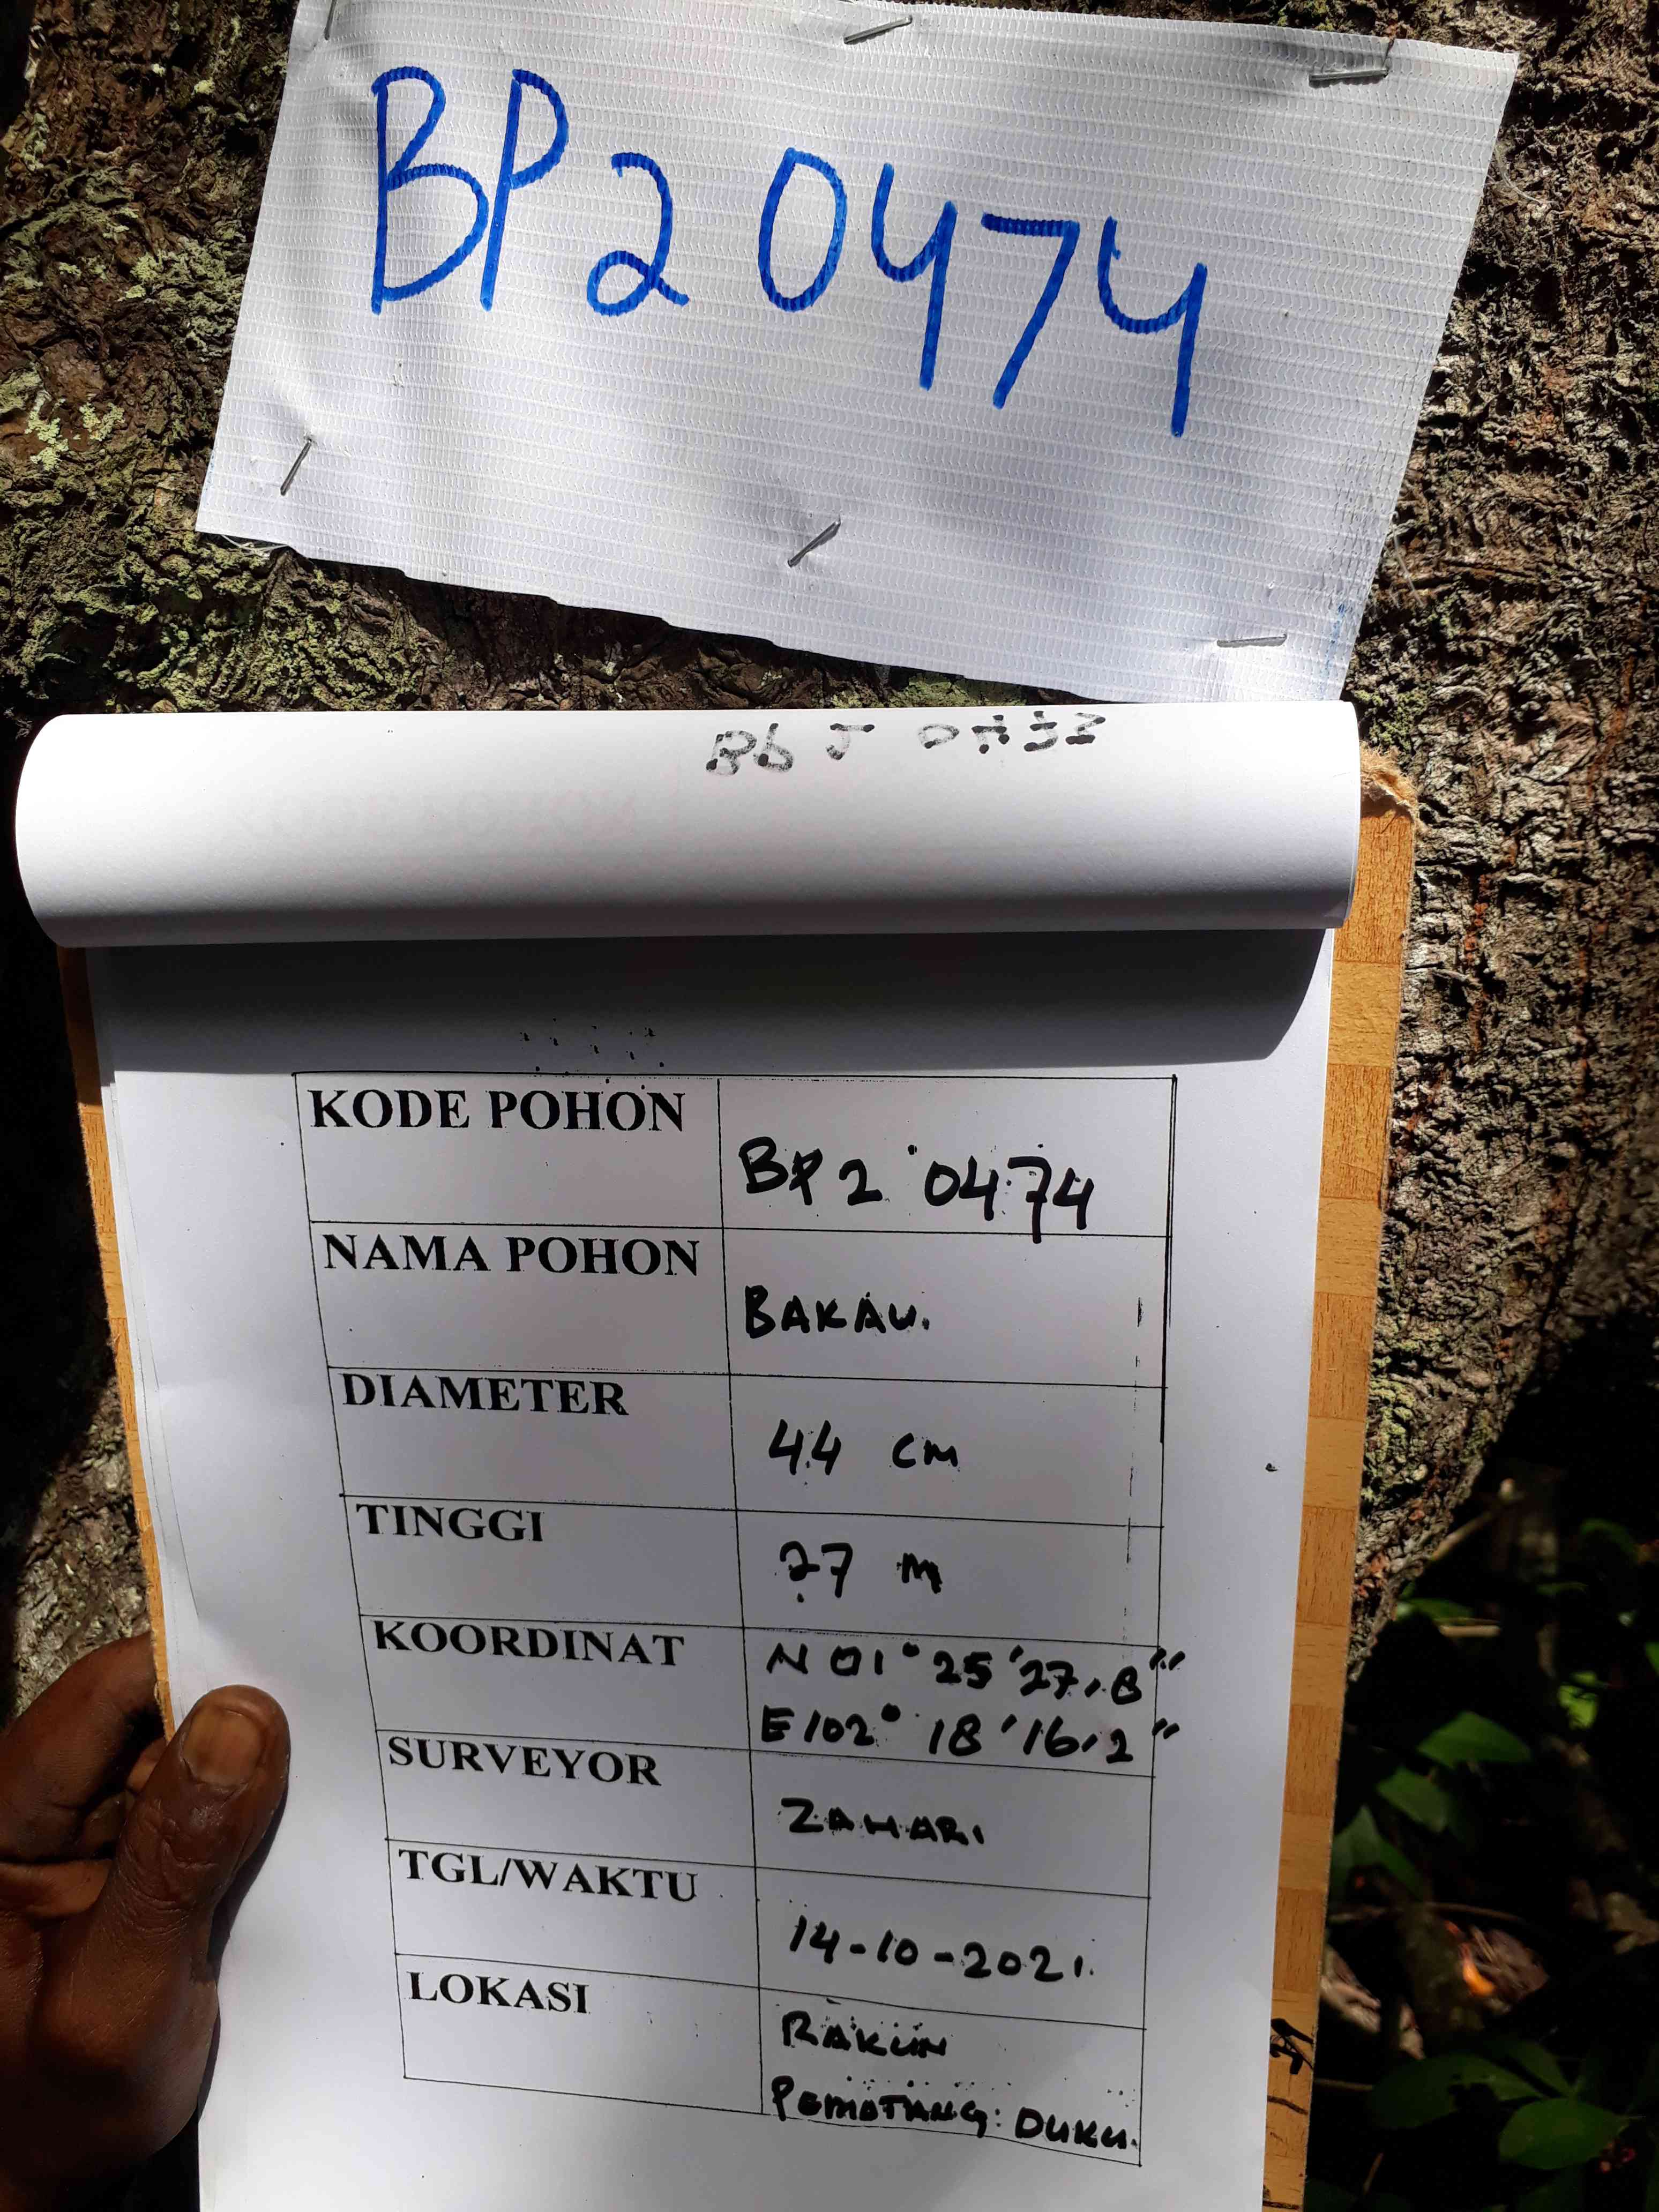 BP2 0474
KODE POHON
BP2 0474
NAMA POHON
BAKAU.
DIAMETER
44 cm
TINGGI
27 m
KOORDINAT
N 01° 25' 27,8"
E 102° 18' 16,2"
SURVEYOR
ZAHARI
TGL/WAKTU
14-10-2021.
LOKASI
RAKUN
PEMATANG: DUKU.